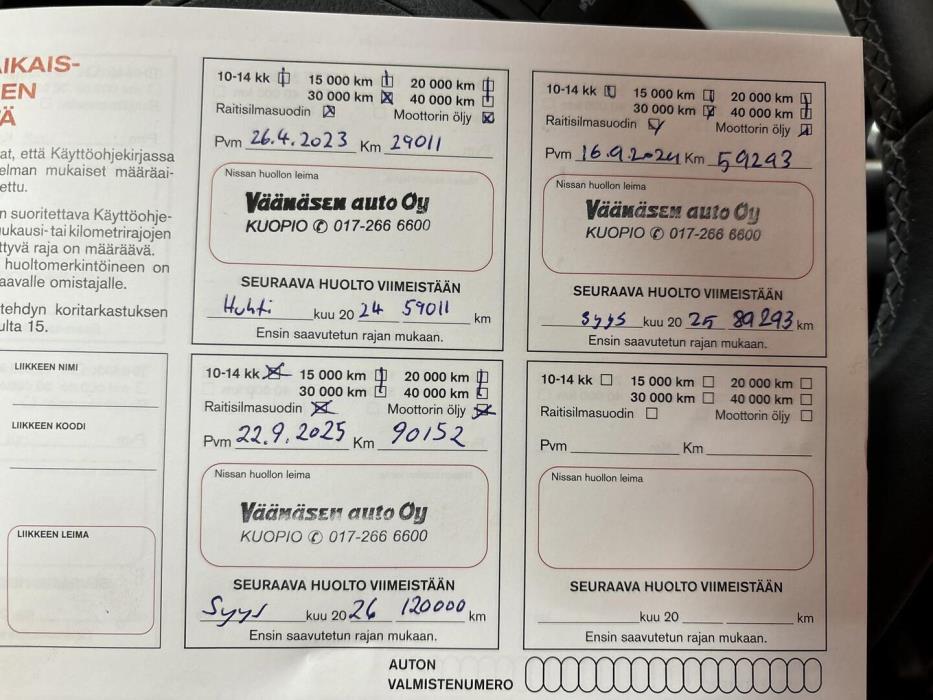 IKAIS-
EN
Ä
at, että Käyttöohjekirjassa
elman mukaiset määräai-
ettu.
n suoritettava Käyttöohje-
ukausi- tai kilometrirajojen
ttyvä raja on määräävä.
huoltomerkintöineen on
aavalle omistajalle.
tehdyn koritarkastuksen
ulta 15.
LIIKKEEN NIMI
LIIKKEEN KOODI
LIIKKEEN LEIMA
10-14 kk 15 000 km 20 000 km
30 000 km 40 000 km
Raitisilmasuodin Moottorin öljy
Pvm 26.4.2023 Km 29011
Nissan huollon leima
Väänäsen auto Oy
KUOPIO ✆ 017-266 6600
SEURAAVA HUOLTO VIIMEISTÄÄN
Huhti kuu 20 24 59011 km
Ensin saavutetun rajan mukaan.
10-14 kk 15 000 km 20 000 km
30 000 km 40 000 km
Raitisilmasuodin Moottorin öljy
Pvm 16.9.2024 Km 59293
Nissan huollon leima
Väänäsen auto Oy
KUOPIO ✆ 017-266 6600
SEURAAVA HUOLTO VIIMEISTÄÄN
Syys kuu 20 25 89293 km
Ensin saavutetun rajan mukaan.
10-14 kk 15 000 km 20 000 km
30 000 km 40 000 km
Raitisilmasuodin Moottorin öljy
Pvm 22.9.2025 Km 90152
Nissan huollon leima
Väänäsen auto Oy
KUOPIO ✆ 017-266 6600
SEURAAVA HUOLTO VIIMEISTÄÄN
Syys kuu 20 26 120000 km
Ensin saavutetun rajan mukaan.
10-14 kk 15 000 km 20 000 km
30 000 km 40 000 km
Raitisilmasuodin Moottorin öljy
Pvm Km
Nissan huollon leima
SEURAAVA HUOLTO VIIMEISTÄÄN
kuu 20 km
Ensin saavutetun rajan mukaan.
AUTON
VALMISTENUMERO